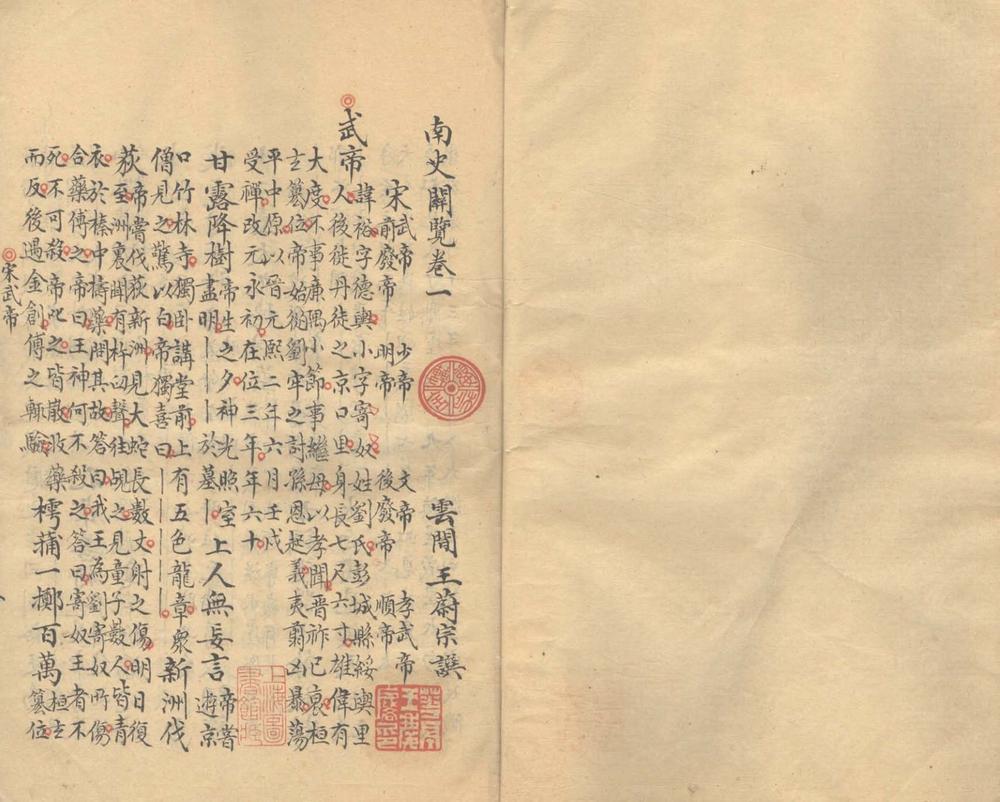 南史闢覽卷一　雲間王蔚宗譔
宋 武帝 少帝 文帝 孝武帝
前廢帝 明帝 後廢帝 順帝
武帝 諱裕字德輿小字寄奴姓劉氏彭城縣綏輿里
人後徙丹徒之京口里身長七尺六寸雄偉有
大度不事廉隅小節事繼母以孝聞晋祚已衰桓
玄篡位帝始從劉牢之討孫恩起義夷翦凶暴蕩
平中原以晉元熙二年六月壬戌
受禪改元永初在位三年年六十
甘露降樹 帝生之夕神光照室
盡明｜｜於墓｜
上人無妄言 帝嘗
遊京
口竹林寺獨卧講堂前上有五色龍章衆
僧見之驚以白帝獨喜曰｜｜｜｜｜
新洲伐
荻 帝嘗伐荻新洲見大蛇長數丈射之傷明日復
至洲裏聞有杵臼聲往覘之見童子數人皆青
衣於榛中擣藥問其故答曰我王為劉寄奴所傷
合藥傅之帝曰王神何不殺之答曰寄奴王者不
死不可殺帝叱之皆散收藥
而反後遇金創傅之輒驗
樗蒱一擲百萬 桓玄
篡位
宋武帝